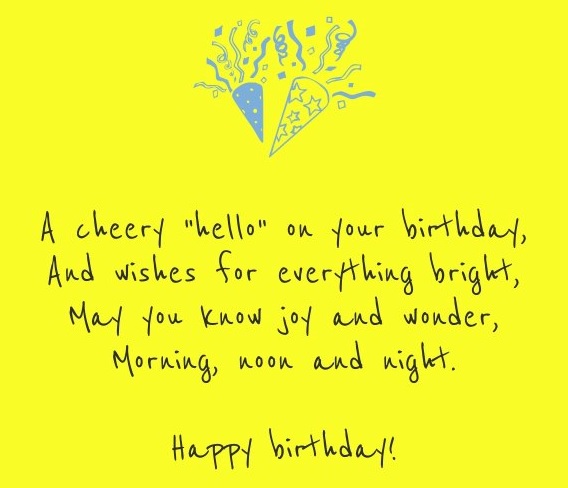 A cheery "hello" on your birthday,
And wishes for everything bright,
May you know joy and wonder,
Morning, noon and night.
Happy birthday!